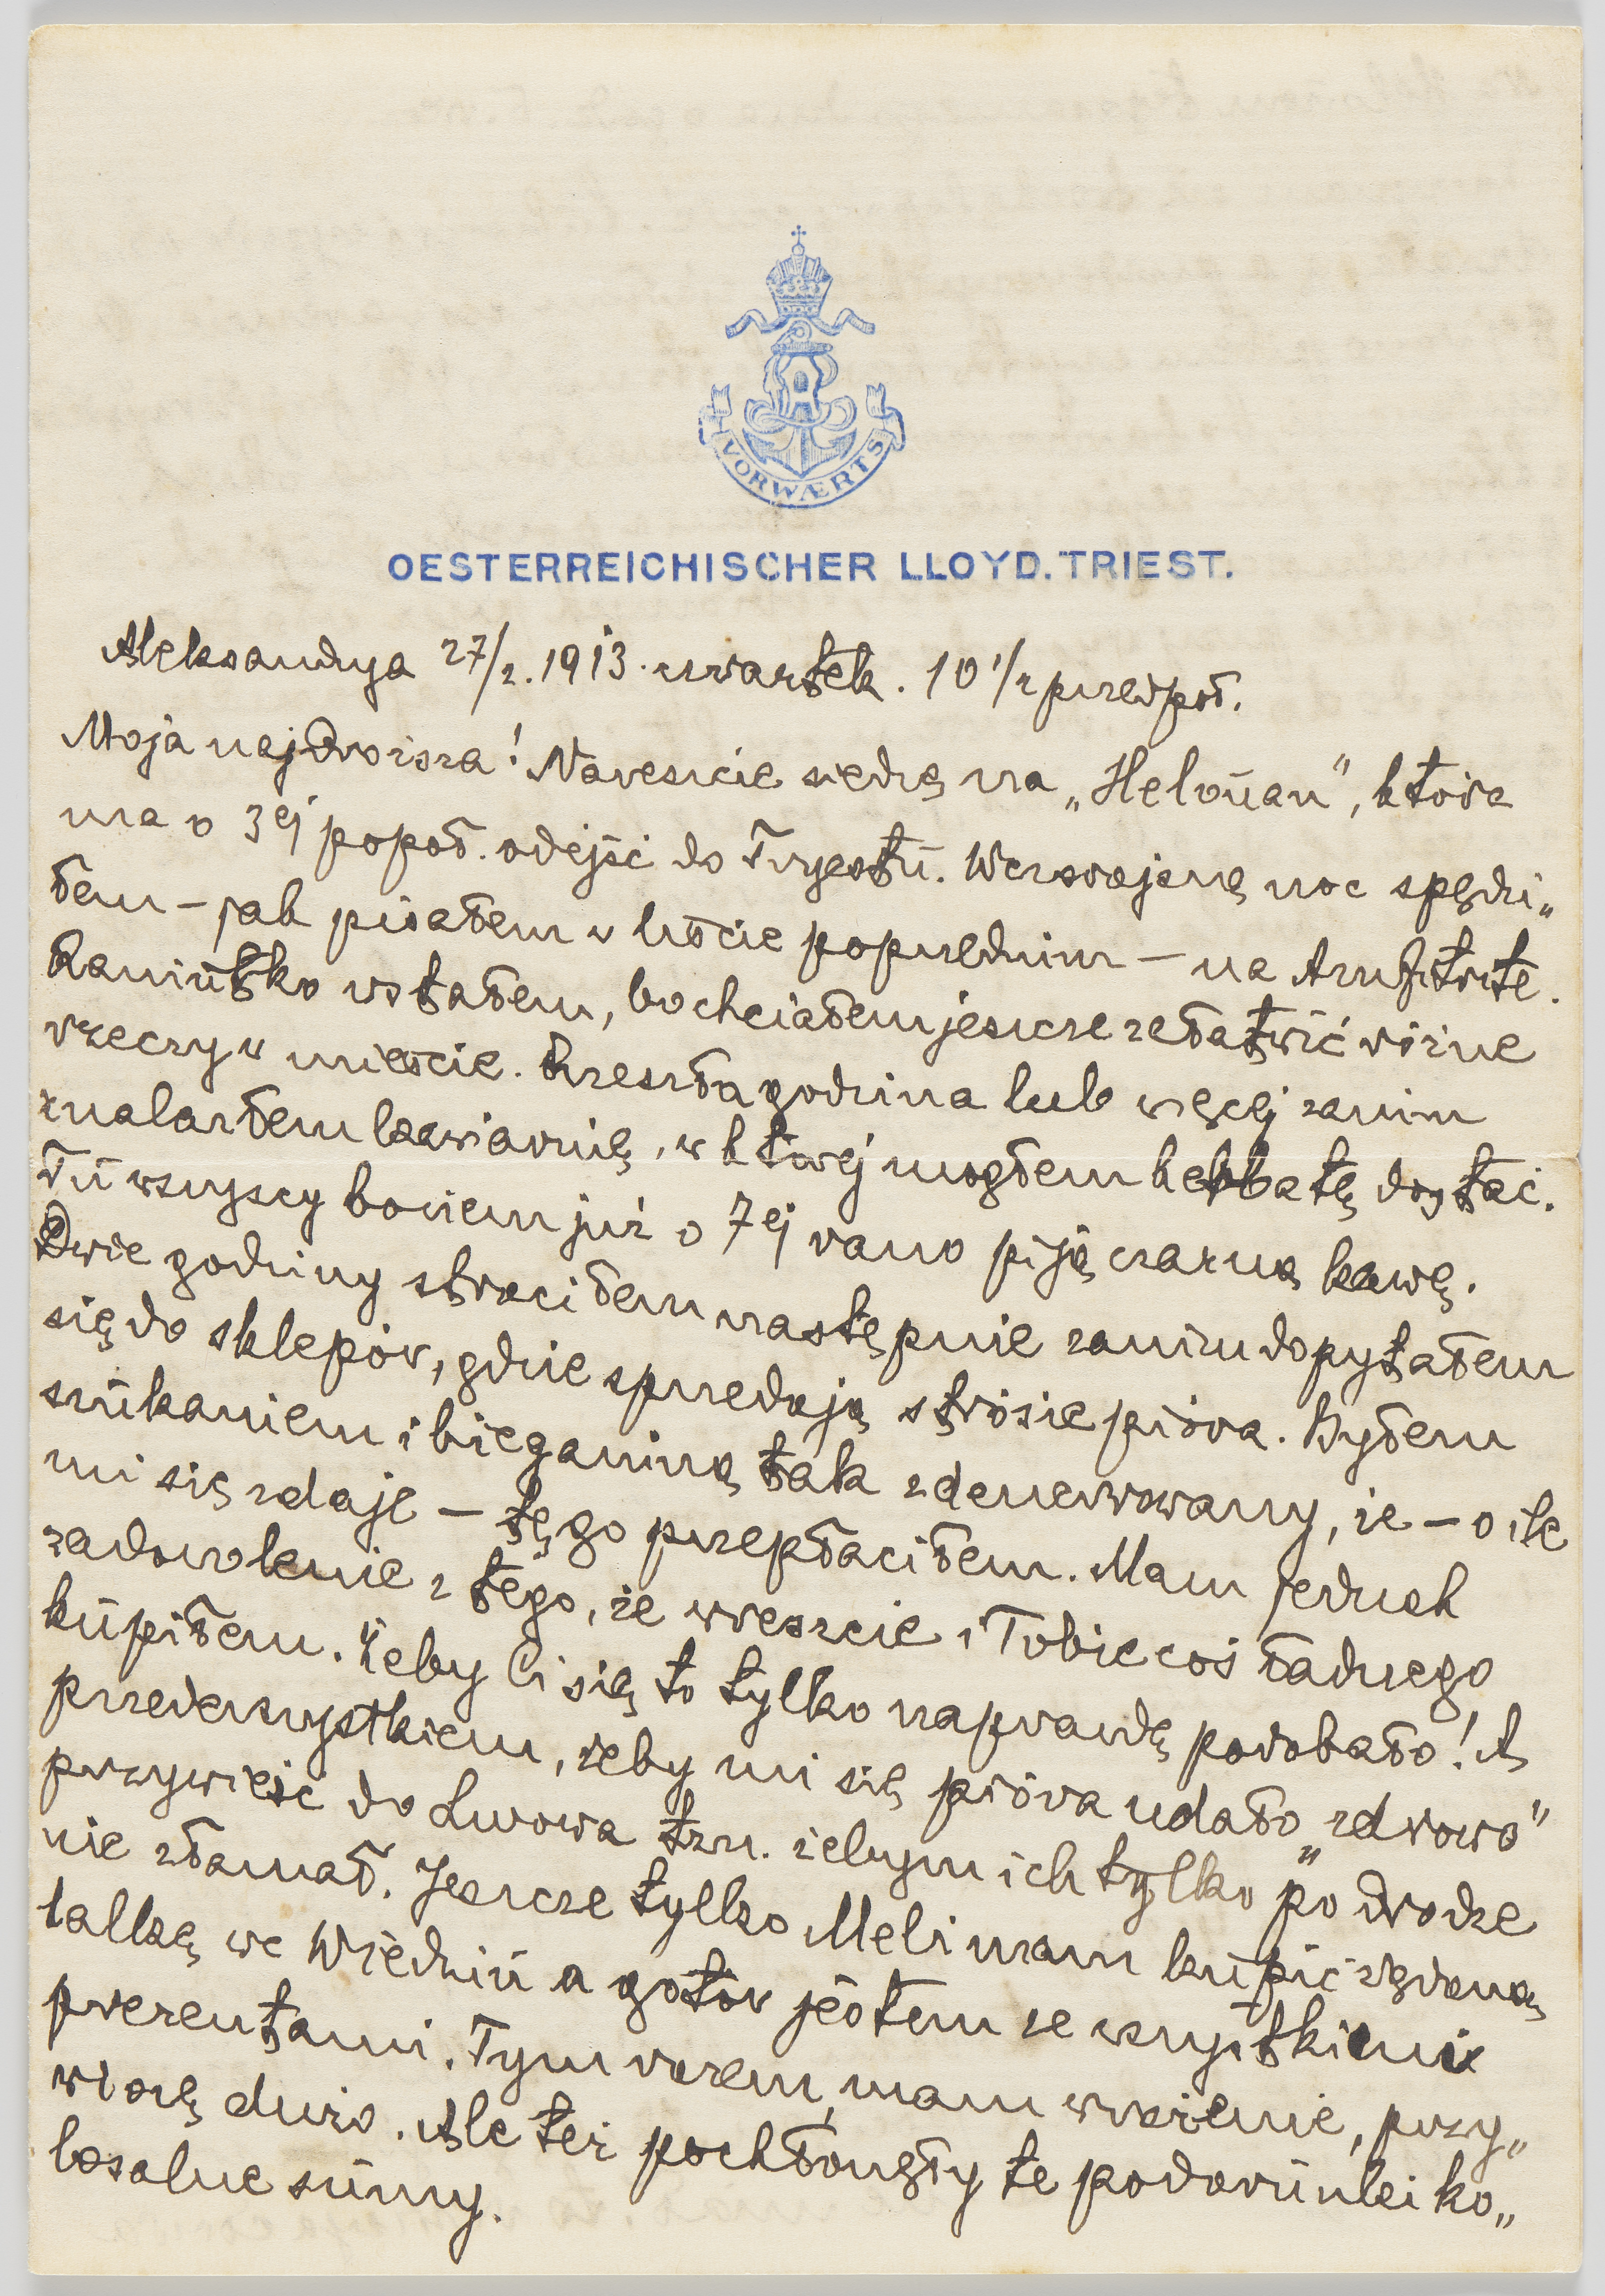 VORWÆRTS
OESTERREICHISCHER LLOYD. TRIEST.
Aleksandrya 27/2. 1913. czwartek. 10 1/2 przedpoł.
Moja najdroższa! Nareszcie siedzę na „Helouan", która
ma o 3ej popoł. odejść do Tryestu. Wczorajszą noc spędzi„
łem – jak pisałem w liście poprzednim – na Amfitrite.
Raniutko wstałem, bo chciałem jeszcze załatwić różne
rzeczy w mieście. Przeszła godzina lub więcej zanim
znalazłem kawiarnię, w której mogłem herbatę dostać.
Tu wszyscy bowiem już o 7ej rano piją czarną kawę.
Dwie godziny straciłem następnie zanim dopytałem
się do sklepów, gdzie sprzedają strusie pióra. Byłem
szukaniem i bieganiną tak zdenerwowany, że – o ile
mi się zdaje – tęgo przepłaciłem. Mam jednak
zadowolenie z tego, że wreszcie i Tobie coś ładnego
kupiłem. Żeby Ci się to tylko naprawdę podobało! A
przedewszystkiem, żeby mi się pióra udało „zdrowo"
przywieść do Lwowa tzn. żebym ich tylko po drodze
nie złamał. Jeszcze tylko Meli mam kupić zgrabną
lalkę we Wiedniu a gotów jestem ze wszystkiemi
prezentami. Tym razem, mam wrażenie, przy„
wiozę dużo. Ale też pochłonęły te podarunki ko„
losalne sumy.